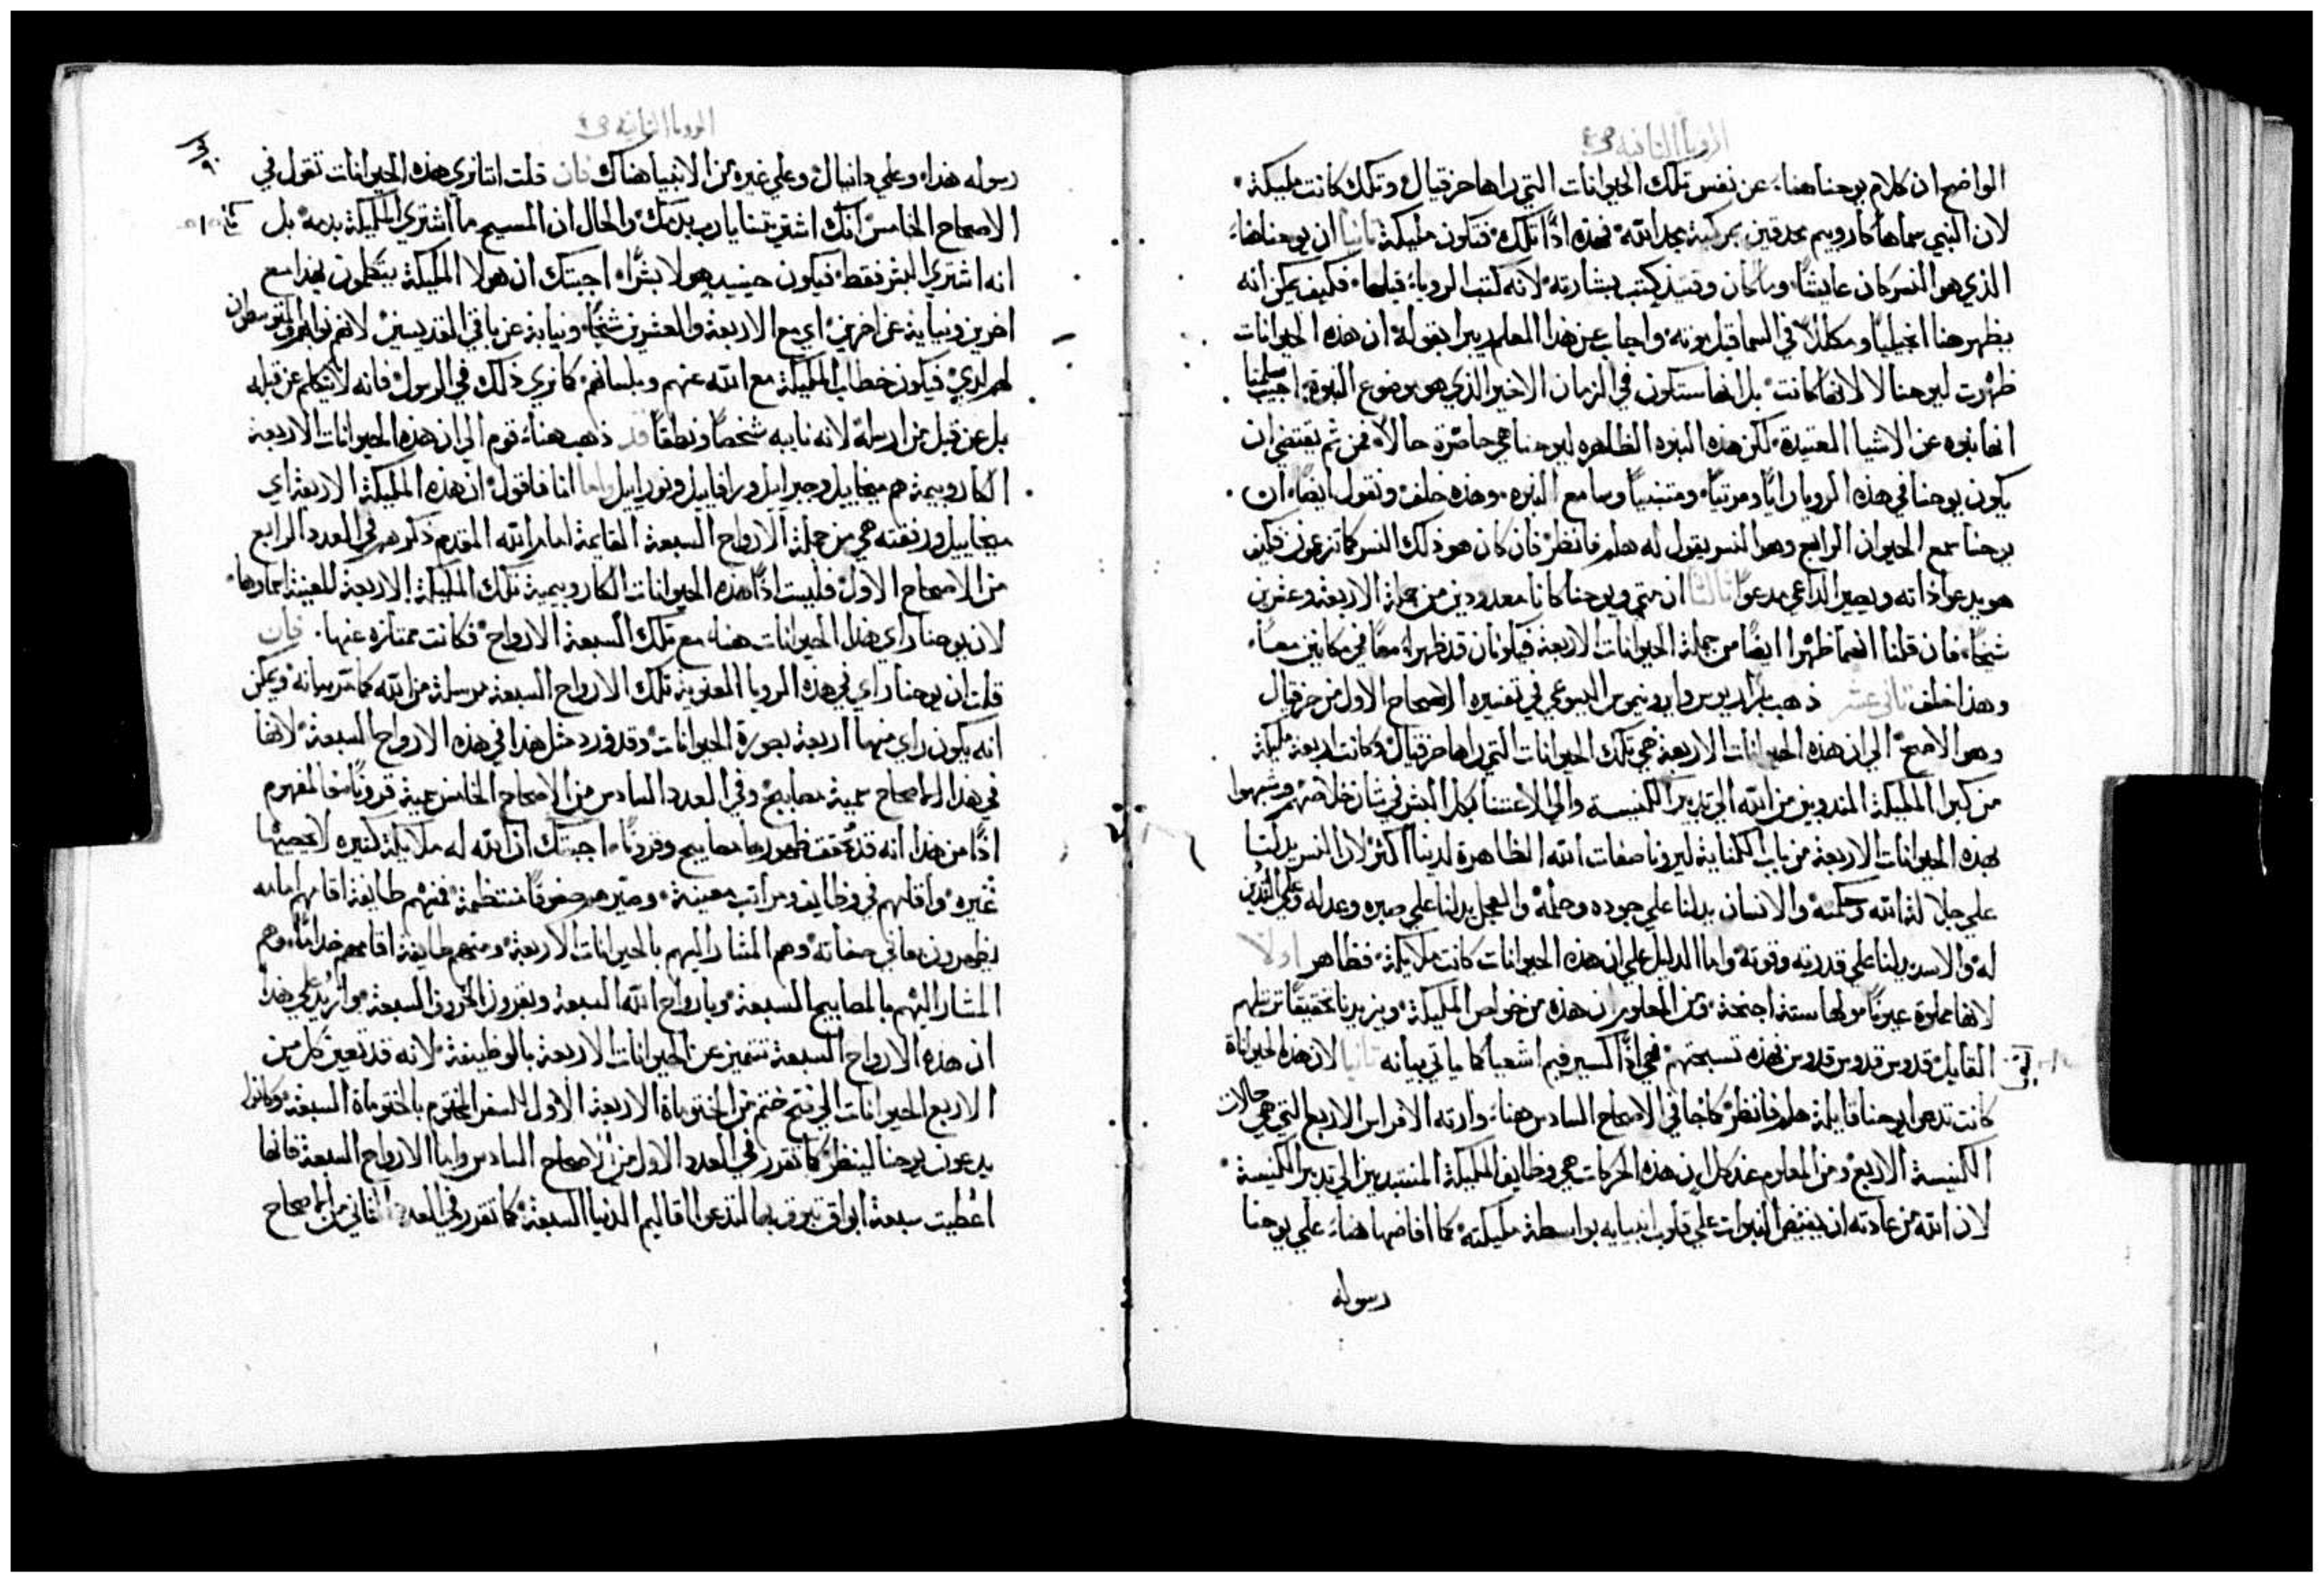 الرويا الثانية ص٤
الواضح ان كلام يوحنا هنا، عن نفس تلك الحيوانات التي راها حزقيال وتلك كانت مليكة
لان النبي سماها كاروبيم محدقين بمركبة مجد الله فهذه اذًا تلك فتكون مليكة ثانيا ان يوحنا هذا
الذي هو النسر كان عايشًا وما كان وقتيذ كتب بشارته لانه كتب الرويا قبلها فكيف يمكن انه
يظهر هنا انجيليًا ومكللًا في السما قبل موته واجاب عن هذا المعلم بقوله ان هذه الحيوانات
ظهرت ليوحنا لا لانها كانت بل انها ستكون في الزمان الاخير الذي هو موضوع النبوة اجيب سلمنا
انها نبوه عن الاشيا العتيدة لكن هذه النبوه الظاهره ليوحنا هي حاضرة حالًا فمن ثم يقتضي ان
يكون يوحنا في هذه الرويا رايًا ومرئيًا ومتنبيًا وسامع النبوه وهذه خلف ونقول ايضًا ان
يوحنا سمع الحيوان الرابع وهو النسر يقول له هلم فانظر فان كان هو ذلك النسر كما تزعمون فكيف
هو يدعو ذاته ويصير الداعي مدعوا ثالثا ان متي ويوحنا كانا معدودين من جملة الاربعة وعشرين
شيخًا، فان قلنا انهما ظهرا ايضًا من جملة الحيوانات الاربعة فيكونان قد ظهرا معًا في مكانين معًا
وهذا خلف ثاني عشر ذهب وايرونيموس اليسوعي في تفسيره الاصحاح الاول من حزقيال
وهو الاصح الي ان هذه الحيوانات الاربعة هي تلك الحيوانات التي راها حزقيال وكانت اربعة مليكة
من كبرا المليكة المندوبين من الله الي تدبير الكنيسة والي الاعتنا بكل البشر في شان خلاصهم وشبهوا
بهذه الحيوانات الاربعة من باب الكناية ليرونا صفات الله الظاهرة لدينا اكثر لان النسر يدلنا
علي جلالة الله وحكمته والانسان يدلنا علي جوده وحلمه والعجل يدلنا علي صبره وعدله وعلي التدين
له والاسد يدلنا علي قدرته وقوته واما الدليل علي ان هذه الحيوانات كانت ملايكة فظاهر اولا
لانها مملوة عيونًا ولها ستة اجنحة ومن المعلوم ان هذه من خواص المليكة ويزيدنا تحقيقًا ترتيلهم
القايل قدوس قدوس قدوس فهذه تسبحتهم فهي اذًا السيرافيم اشعيا كما ياتي بيانه ثانيا لان هذه الحيوانات
كانت تدعو يوحنا قايلة هلم فانظر كما جا في الاصحاح السادس هنا، وارته الافراس الاربع التي هي حالات
الكنيسة الاربع ومن المعلوم عند كل ان هذه الحركات هي وظايف المليكة المنتدبين الي تدبير الكنيسة
لان الله من عادته ان يفيض النبوات علي قلوب انبيايه بواسطة مليكته كما افاضها هنا، علي يوحنا
رسوله
الرويا الثانية ص٤
رسوله هذا، وعلي دانيال وعلي غيره من الانبيا هناك فان قلت اننا نري هذه الحيوانات تقول في
الاصحاح الخامس انك اشتريتنا يا رب بدمك والحال ان المسيح ما اشتري المليكة بدمه بل
انه اشتري البشر فقط فيكون حينيذ هولا بشرًا، اجبتك ان هولا المليكة يتكلمون بهذا مع
اخرين ونيابة عن اخرين اي مع الاربعة والعشرين شيخًا ونيابة عن باقي القديسين لانهم نوابهم والمتوسطون
لهم لديه فيكون خطاب المليكة مع الله عنهم وبلسانهم كما نري ذلك في الرسول فانه لا يتكلم عن قبله
بل عن قبل من ارسله لانه نايبه شخصًا ونطقًا قد ذهب هنا، قوم الي ان هذه الحيوانات الاربعة
الكاروبيمية هم ميخاييل وجبراييل ورافاييل ونوراييل واما انا فاقول ان هذه المليكة الاربعة اي
ميخاييل ورفقته هي من جملة الارواح السبعة القايمة امام الله المقدم ذكرهم في العدد الرابع
من الاصحاح الاول فليست اذًا هذه الحيوانات الكاروبيمية تلك المليكة الاربعة المعينة اسماوها
لان يوحنا راي هذه الحيوانات هنا، مع تلك السبعة الارواح فكانت ممتازه عنها. فان
قلت ان يوحنا راي في هذه الرويا المعنوية تلك الارواح السبعة مرسلة من الله كما مر بيانه ويمكن
انه يكون راي منها اربعة بصورة الحيوانات وقد ورد مثل هذا في هذه الارواح السبعة لانها
في هذا الاصحاح سميت مصابيح وفي العدد السادس من الاصحاح الخامس سميت قرونًا فالمفهوم
اذًا من هذا انه قد تحقق ظهورها مصابيح وقرونًا، اجبتك ان الله له ملايكة كثيره لا يحصيها
غيره واقامهم في وظايف ومراتب معينة، وصيرهم صفوفًا منتظمة فمنهم طايفة اقامهم امامه
يظهرون معاني صفاته وهم المشار اليهم بالحيوانات الاربعة ومنهم طايفة اقامهم خدامًا وهم
المشار اليهم بالمصابيح السبعة وبارواح الله السبعة وبقرون الخروف السبعة وازيد علي هذا
ان هذه الارواح السبعة تتميز عن الحيوانات الاربعة بالوظيفة لانه قد تعين كل من
الاربع الحيوانات الي فتح ختم من الختومات الاربعة الاول للسفر المختوم بالختومات السبعة وكانوا
يدعون يوحنا لينظر كما تقرر في العدد الاول من الاصحاح السادس واما الارواح السبعة فانها
اعطيت سبعة ابواق تبوق بها لتدعو اقاليم الدنيا السبعة كما تقرر في العدد الثاني من الاصحاح